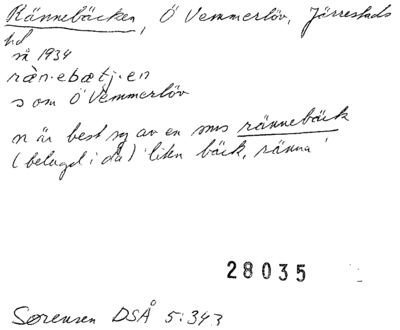 Rännebäcken, Ö Vemmerlöv, Järrestads
hd
så 1934
ràn·ebætj·en
som Ö Vemmerlöv
n är best sg av en sms rännebäck
(belagd i da) 'liten bäck, ränna'
28035
Sørensen DSÅ 5:343